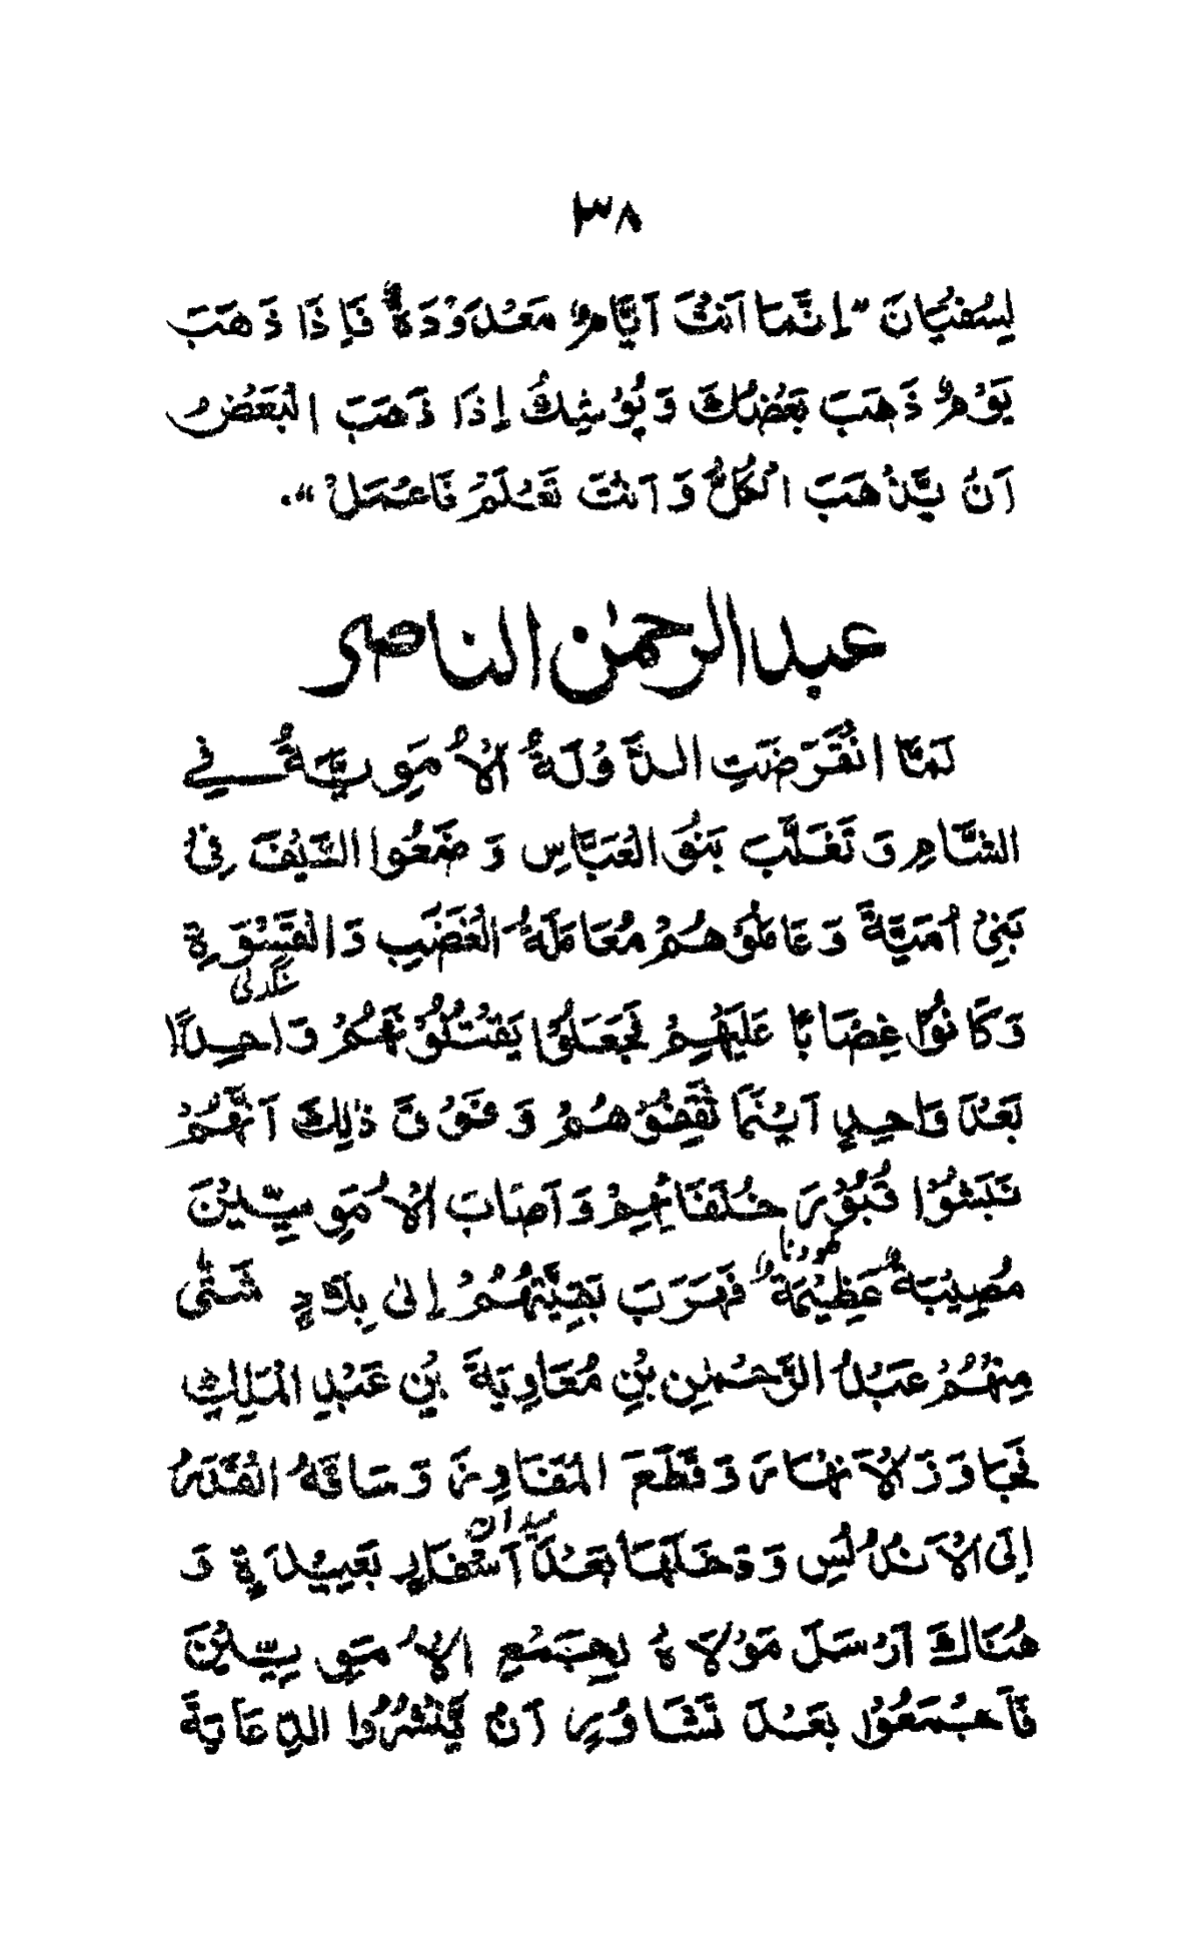 ٣٨
لِسُفْيَانَ "اِنَّمَا اَنْتَ اَيَّامٌ مَعْدُوْدَةٌ فَاِذَا ذَهَبَ
يَوْمٌ ذَهَبَ بَعْضُكَ وَيُوْشِكُ اِذَا ذَهَبَ الْبَعْضُ
اَنْ يَّذْهَبَ الْكُلُّ وَاَنْتَ تَعْلَمُ فَاعْمَلْ".
عبدالرحمٰن الناصر
لَمَّا انْقَرَضَتِ الدَّوْلَةُ الْاُمَوِيَّةُ فِي
الشَّامِ وَتَغَلَّبَ بَنُو الْعَبَّاسِ وَضَعُوا السَّيْفَ فِيْ
بَنِيْ اُمَيَّةَ وَعَامَلُوْهُمْ مُعَامَلَةَ الْغَضَبِ وَالْقَسْوَةِ
سنگدلی
وَكَانُوْا غِضَابًا عَلَيْهِمْ فَجَعَلُوْا يَقْتُلُوْنَهُمْ وَاحِدًا
بَعْدَ وَاحِدٍ اَيْنَمَا ثَقِفُوْهُمْ وَفَوْقَ ذٰلِكَ اَنَّهُمْ
نَبَشُوْا قُبُوْرَ خُلَفَائِهِمْ وَاَصَابَ الْاُمَوِيِّيْنَ
کھودنا
مُصِيْبَةٌ عَظِيْمَةٌ فَهَرَبَ بَقِيَّتُهُمْ اِلٰى بِلَادٍ شَتّٰى
مِنْهُمْ عَبْدُ الرَّحْمٰنِ بْنِ مُعَاوِيَةَ بْنِ عَبْدِ الْمَلِكِ
فَجَاوَزَ الْاَنْهَارَ وَقَطَعَ الْمَفَاوِزَ وَسَاقَهُ الْقَدَرُ
اِلَى الْاَنْدُلُسِ وَدَخَلَهَا بَعْدَ اَسْفَارٍ بَعِيْدَةٍ وَ
هُنَاكَ اَرْسَلَ مَوْلَاهُ لِجَمْعِ الْاُمَوِيِّيْنَ
فَاَجْمَعُوْا بَعْدَ تَشَاوُرٍ اَنْ يَّنْشُرُوا الدِّعَايَةَ